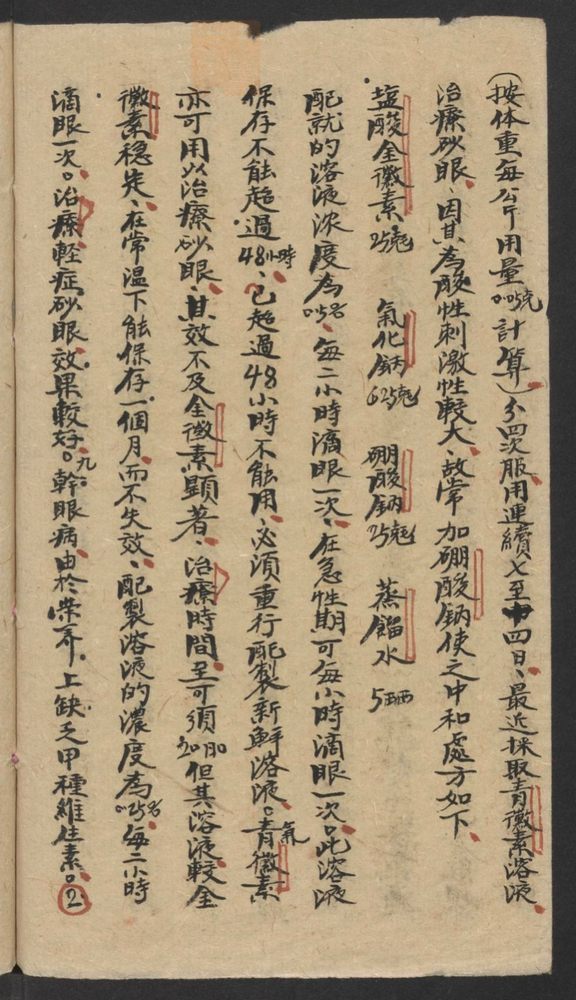 (按体重每公斤用量0.05克計算)分四次服用連續七至十四日、最近採取青黴素溶液
治療砂眼、因其為酸性刺激性較大、故常加硼酸鈉使之中和處方如下、
塩酸金黴素25克 氯化鈉625克 硼酸鈉25克 蒸餾水5西西
配就的溶液浓度為0.5%、每二小時滴眼一次、在急性期可每小時滴眼一次。此溶液
保存不能超過48小時、已超過48小時不能用、必須重行配製新鮮溶液。青氯黴素
亦可用以治療砂眼、其效不及金黴素顯著、治療時間至可須20日但其溶液較金
黴素穩定、在常温下能保存一個月而不失效、配製溶液的濃度為0.25%每二小時
滴眼一次。治療輕症砂眼效果較好。九。幹眼病、由於荣养上缺乏甲種維生素。2